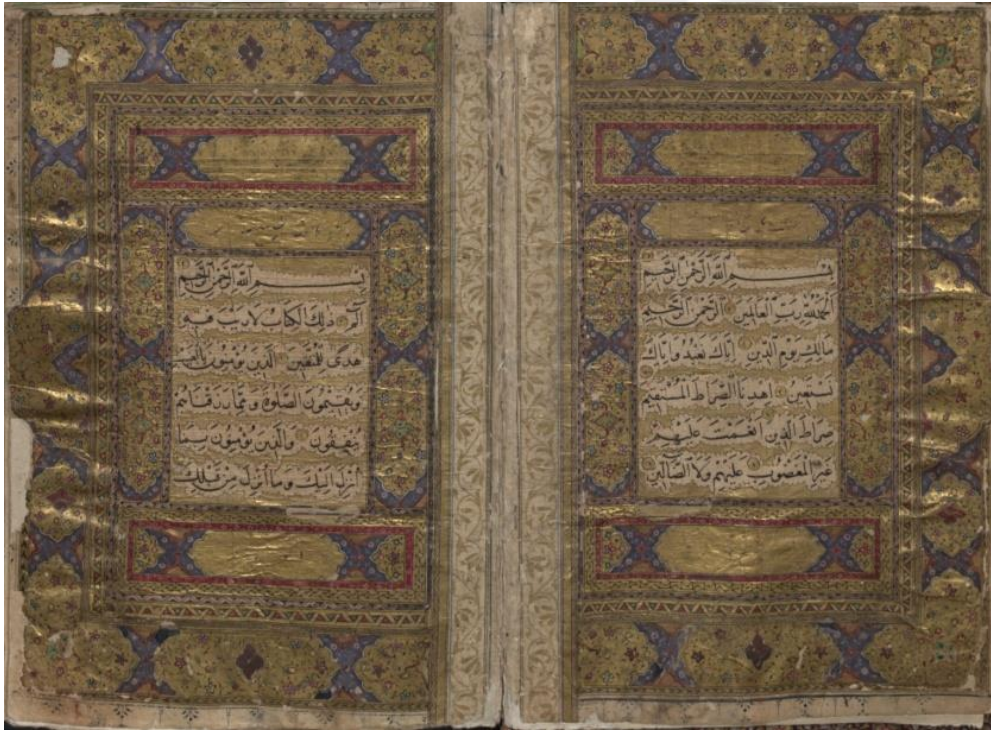 بسم الله الرحمن الرحيم
الحمد لله رب العالمين الرحمن الرحيم
مالك يوم الدين اياك نعبد واياك
نستعين اهدنا الصراط المستقيم
صراط الذين انعمت عليهم
غير المغضوب عليهم ولا الضالين
بسم الله الرحمن الرحيم
الم ذلك الكتاب لا ريب فيه
هدى للمتقين الذين يؤمنون بالغيب
ويقيمون الصلوة ومما رزقناهم
ينفقون والذين يؤمنون بما
انزل اليك وما انزل من قبلك